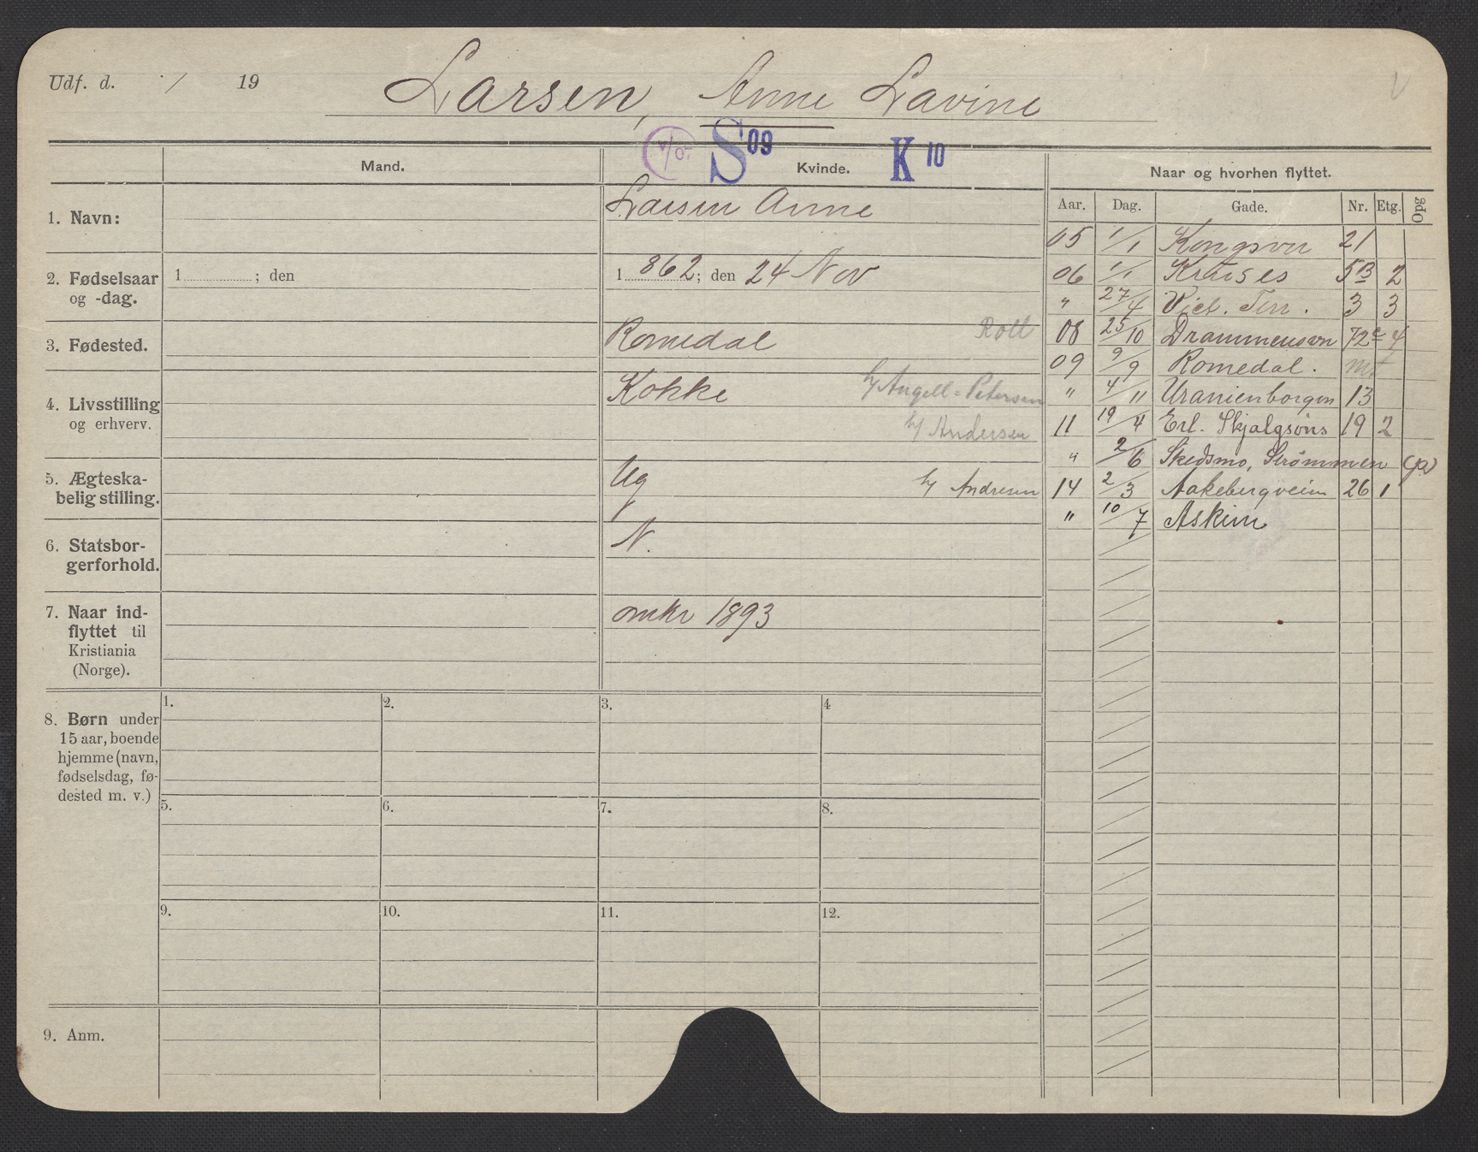 Udf. d. / 19
Larsen, Anne Lavine
S 09
K 10
Mand.
Kvinde.
Naar og hvorhen flyttet.
Aar. Dag. Gade. Nr. Etg. Opg
1. Navn:
Larsen Anne
2. Fødselsaar
og -dag.
1 ; den
1862; den 24 Nov
3. Fødested.
Romedal
4. Livsstilling
og erhverv.
Kokke
h/ Angell-Petersen
h/ Andersen
5. Ægteska-
belig stilling.
Ug
h/ Andresen
6. Statsbor-
gerforhold.
N.
7. Naar ind-
flyttet til
Kristiania
(Norge).
omkr 1893
8. Børn under
15 aar, boende
hjemme (navn,
fødselsdag, fø-
dested m. v.)
1. 2. 3. 4
5. 6. 7. 8.
9. 10. 11. 12.
9. Anm.
05 1/1 Kongsvn 21
06 1/1 Kruses 5B 2
" 27/4 Vict. Terr. 3 3
08 25/10 Drammensvn 72c 4
09 9/9 Romedal.
" 4/11 Uranienborgvn 13
11 19/4 Erl. Skjalgsøns 19 2
" 2/6 Skedsmo, Strømmen
14 2/3 Aakebergveien 26 1
" 10/7 Askim